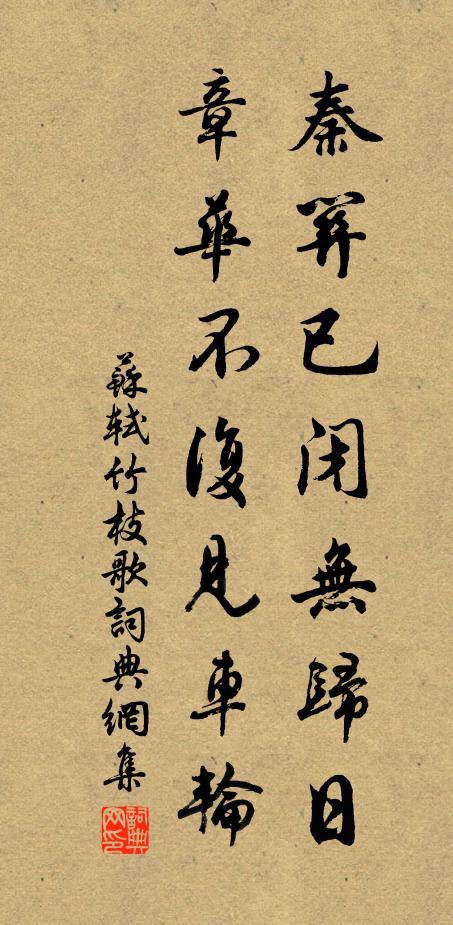 秦關已閉無歸日
章華不復見車輪
蘇軾竹枝歌詞典網集
詞典网印